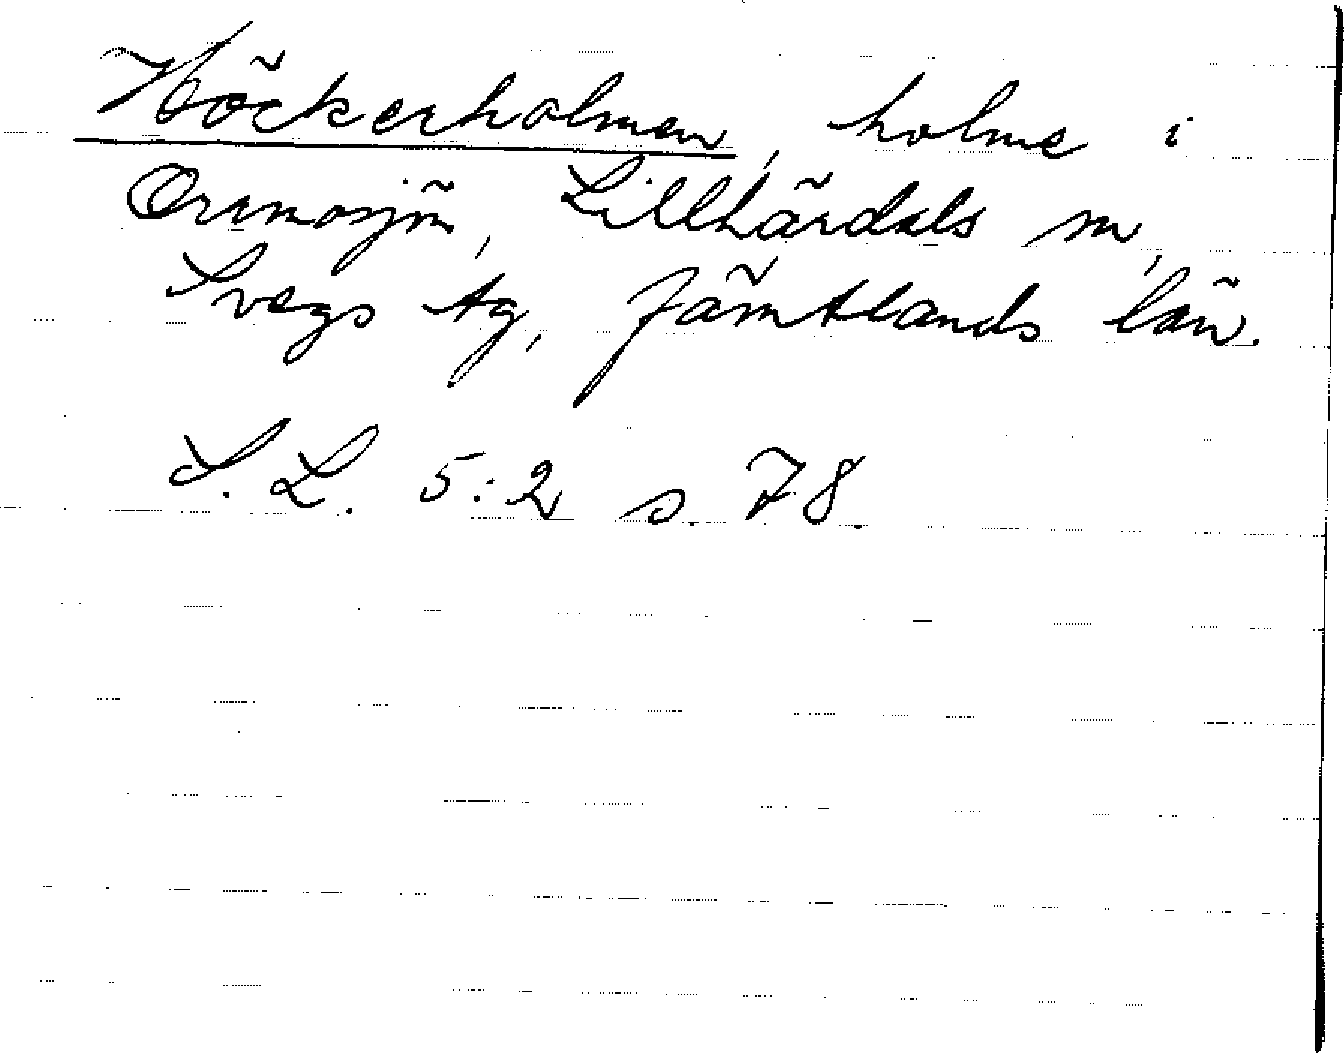 Höckerholmen, holme i
Ormosjön, Lillhärdals sn,
Svegs tg, Jämtlands län.
S. L. 5:2 s. 78.